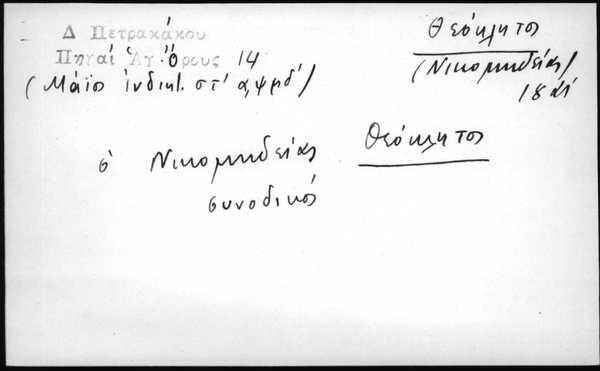 Δ Πετρακάκου
Πηγαί Ἁγ. Ὄρους 14
(Μάϊος ἰνδικτ. στ' α,ψμδ')
Θεόκλητος
(Νικομηδείας)
ὁ Νικομηδείας Θεόκλητος
συνοδικός